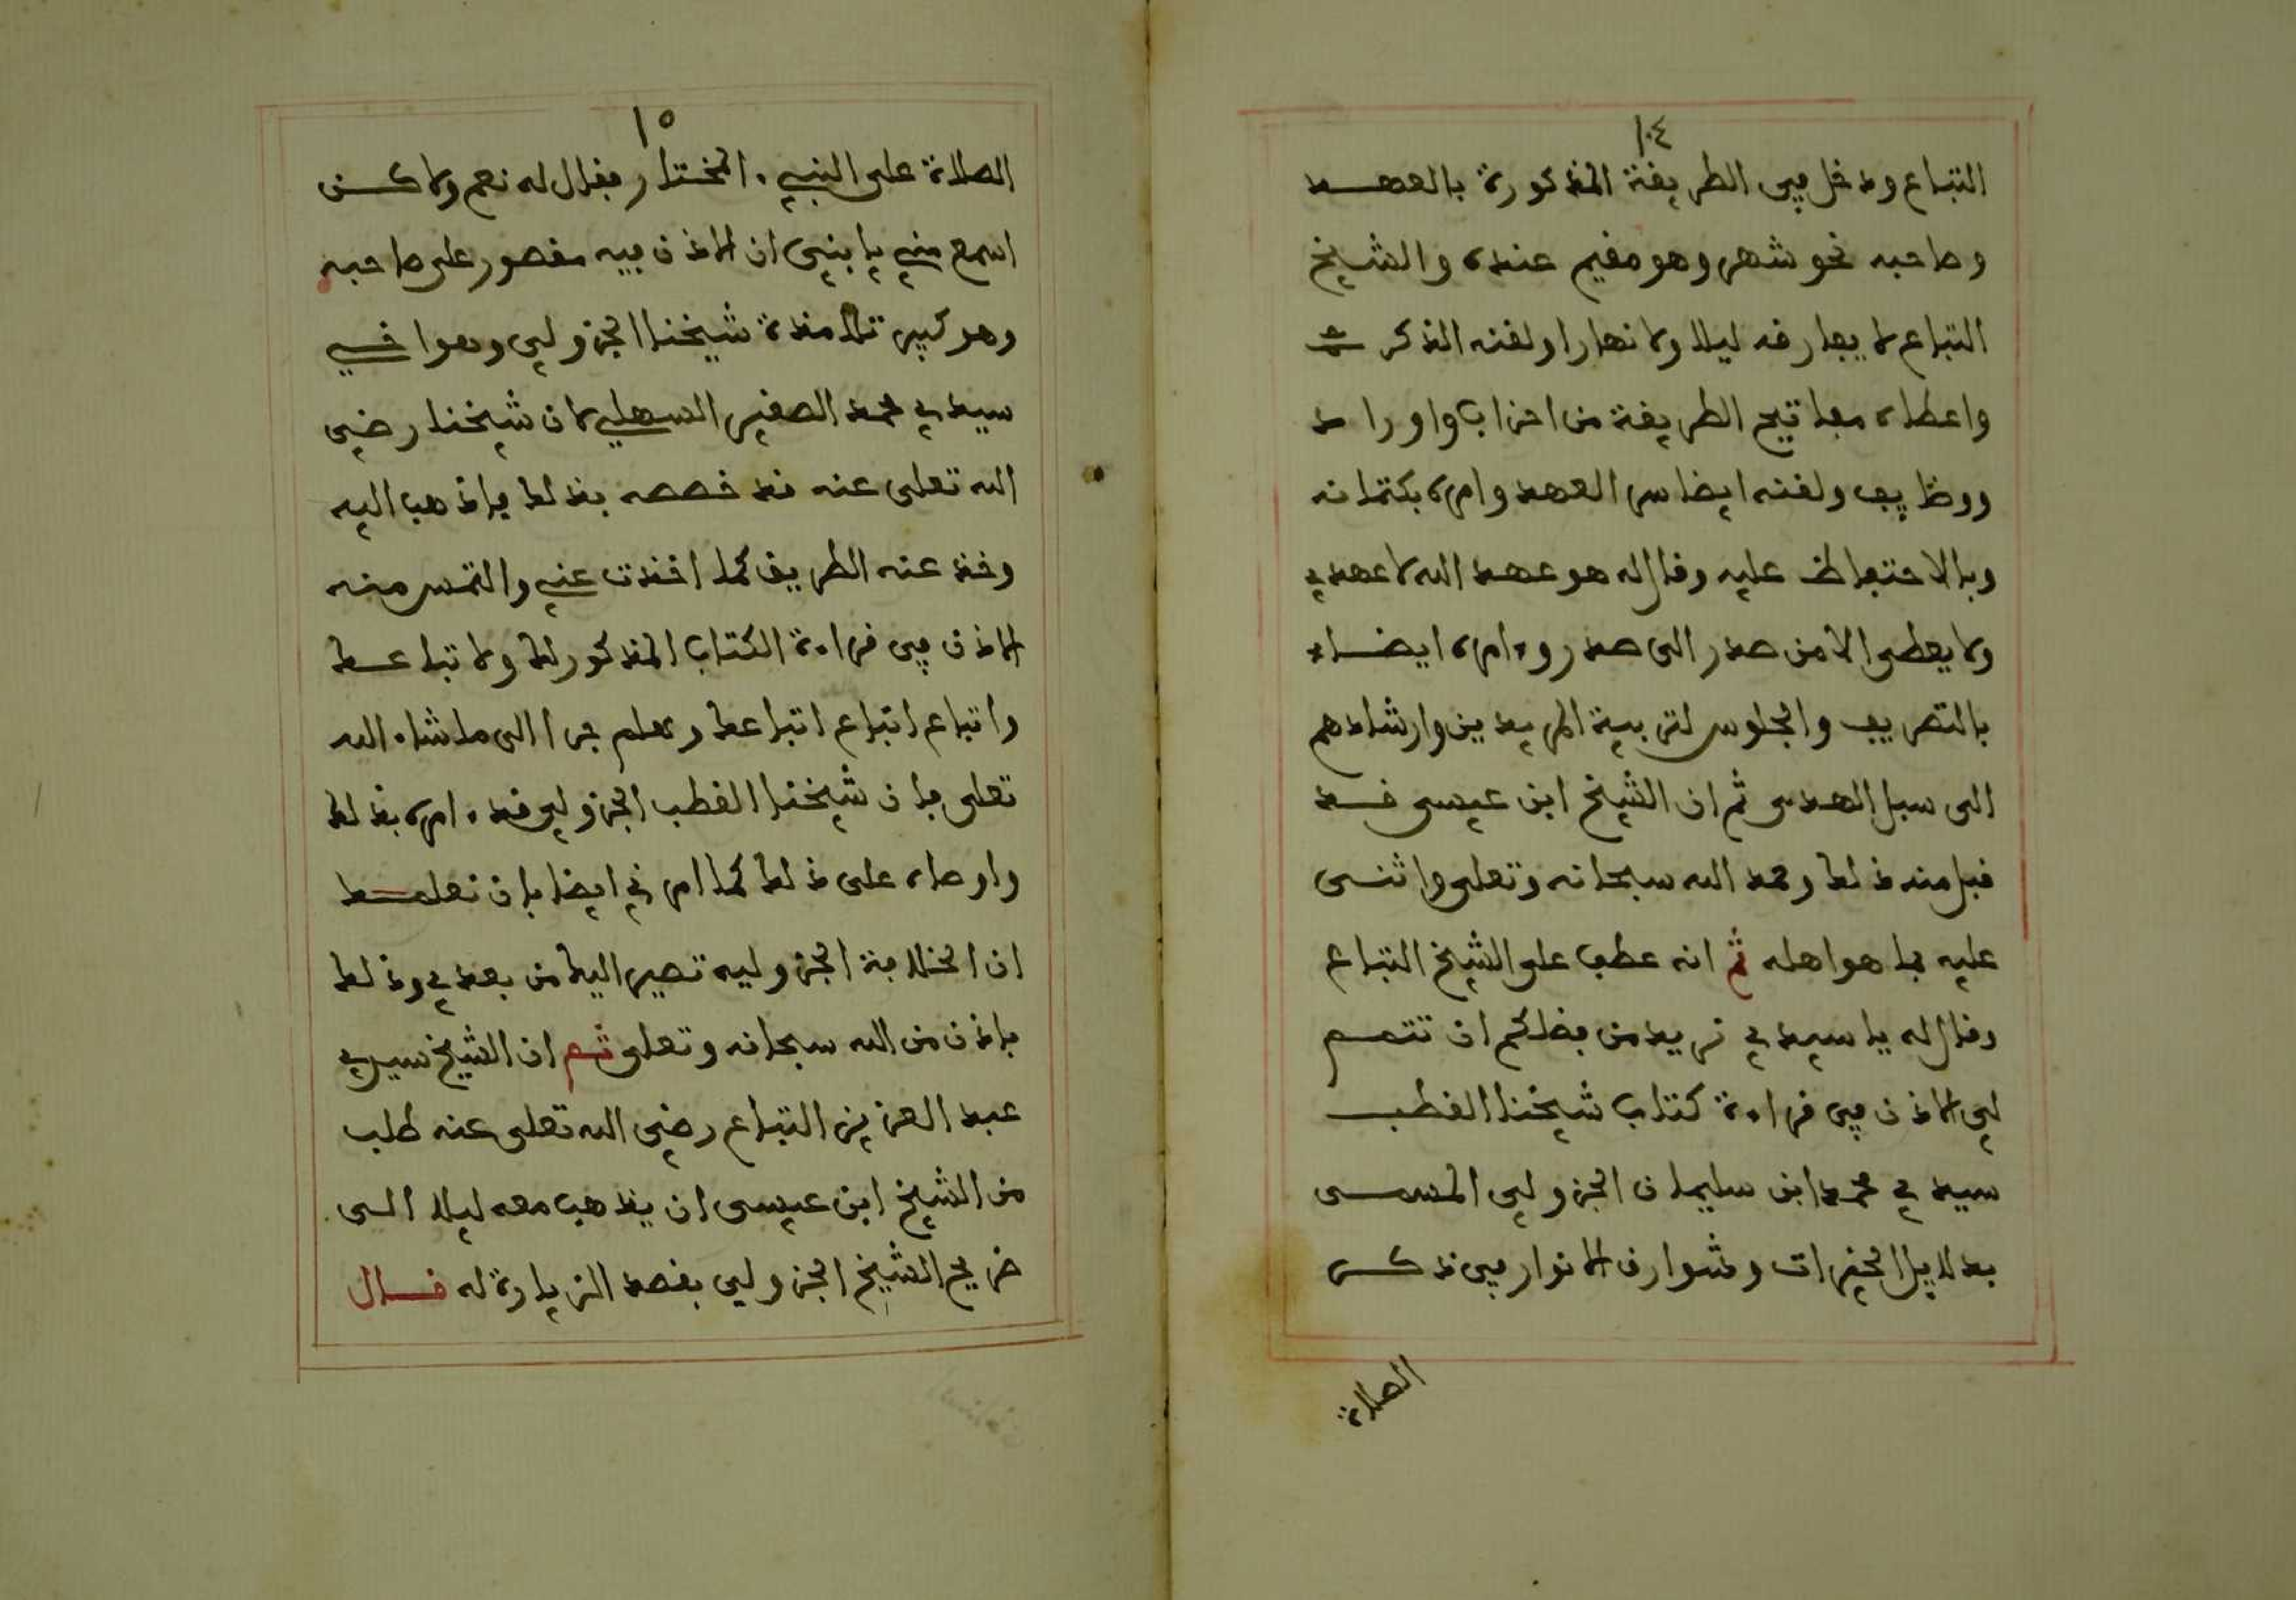 ١٠٤
التباع ودخل في الطريقة المذكورة بالعهد
وصاحبه نحو شهر وهو مقيم عنده والشيخ
التباع لا يفارقه ليلا ولا نهارا ولقنه الذكر
واعطاه مفاتيح الطريقة من احزاب واوراد
ووظايف ولقنه ايضا سر العهد وامره بكتمانه
وبالاحتفاظ عليه وقال له هو عهد الله لا عهدي
ولا يعطى الا من صدر الى صدر وامره ايضا
بالتصريف والجلوس لتربية المريدين وارشادهم
الى سبل الهدى ثم ان الشيخ ابن عيسى قد
قبل منه ذلك وحمد الله سبحانه وتعلى واثنى
عليه بما هو اهله ثم انه عطف على الشيخ التباع
وقال له يا سيدي نريد من فضلكم ان تتم
لي الاذن في قراءة كتاب شيخنا القطب
سيدي محمد ابن سليمان الجزولي المسمى
بدلايل الخيرات وشوارق الانوار في ذكر
الصلاة
١٠٥
الصلاة على النبيء المختار فقال له نعم ولاكن
اسمع مني يا بني ان الاذن فيه مقصور على صاحبه
وهو كبير تلامذة شيخنا الجزولي وهو اخي
سيدي محمد الصغير السهلي لان شيخنا رضي
الله تعلى عنه قد خصصه بذلك فاذهب اليه
وخذ عنه الطريق كما اخذت عني والتمس منه
الاذن في قراءة الكتاب المذكور لك ولاتباعك
واتباع اتباع اتباعك وهلم جرا الى ما شاء الله
تعلى فان شيخنا القطب الجزولي قد امره بذلك
واوصاه على ذلك كما امرني ايضا بان نعلمك
ان الخلافة الجزوليه تصير اليك من بعدي وذلك
باذن من الله سبحانه وتعلى ثم ان الشيخ سيدي
عبد العزيز التباع رضي الله تعلى عنه طلب
من الشيخ ابن عيسى ان يذهب معه ليلا الى
ضريح الشيخ الجزولي بقصد الزيارة له قال